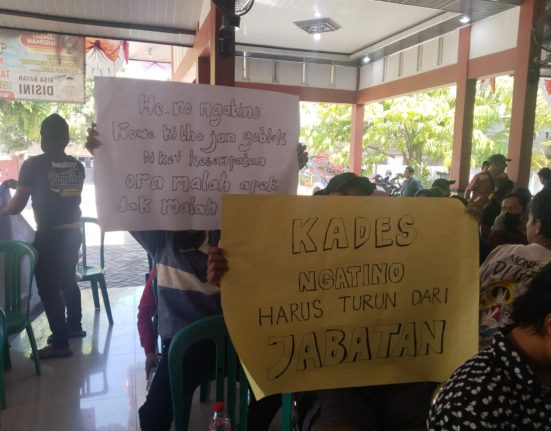 He_no ngatino
Kowe ki tho jan goblok
Di kei kasempatan
ora malah apek
dak malah
KADES
NGATINO
HARUS TURUN DARI
JABATAN
BISA BAYAR
DISINI